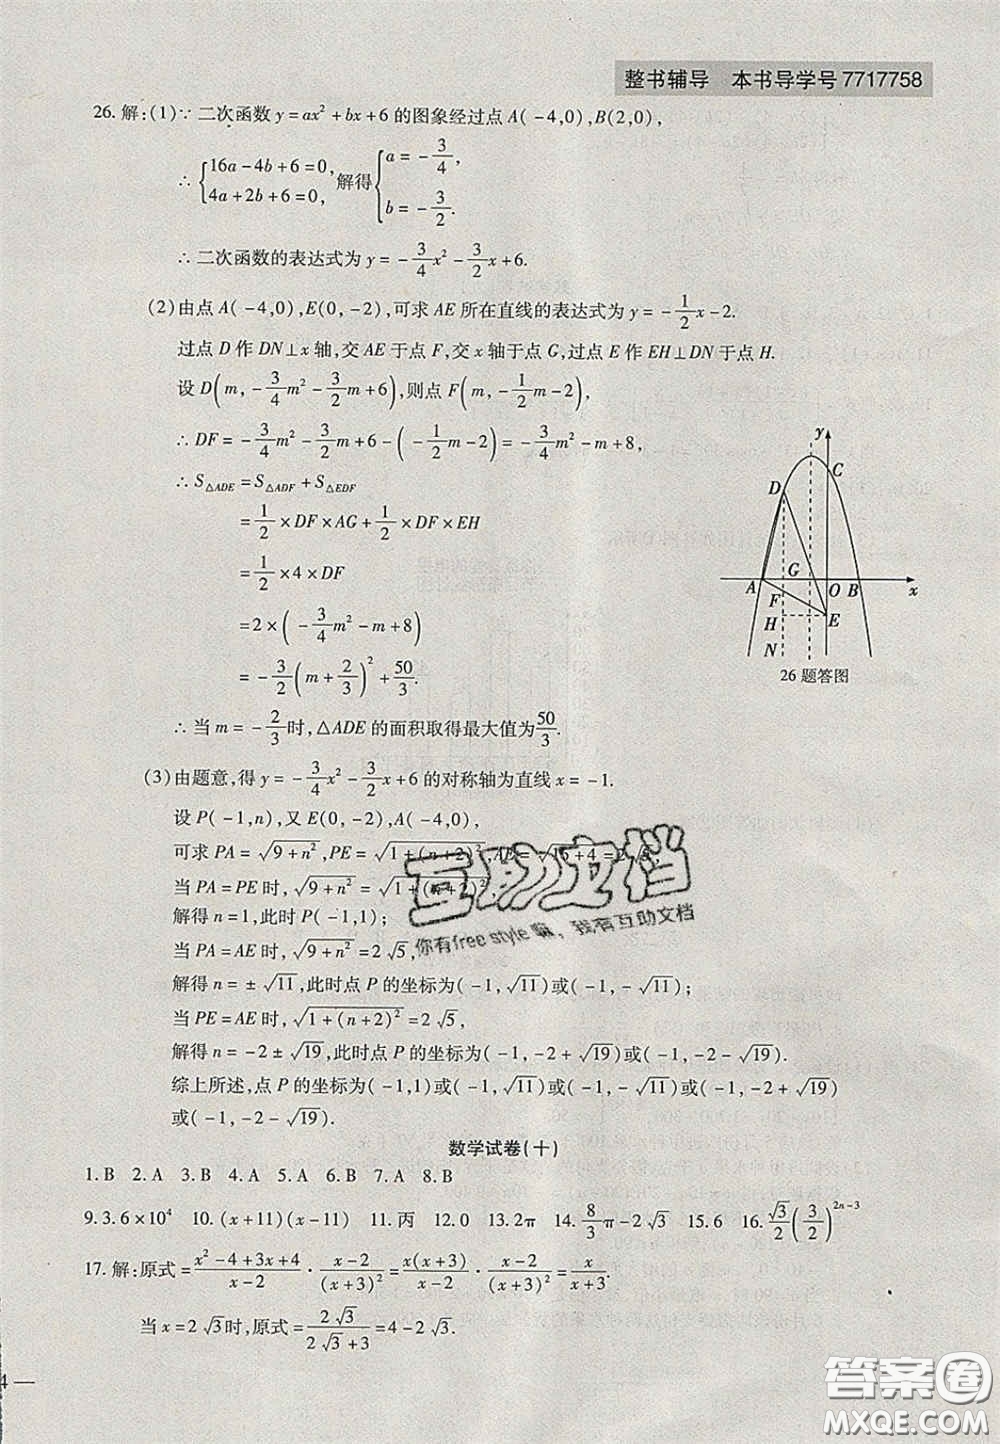 整书辅导 本书导学号7717758
26.解:(1)∵二次函数y=ax²+bx+6的图象经过点A(-4,0),B(2,0),
∴{16a-4b+6=0, 4a+2b+6=0, 解得{a=-3/4, b=-3/2.
∴二次函数的表达式为y=-3/4x²-3/2x+6.
(2)由点A(-4,0),E(0,-2),可求AE所在直线的表达式为y=-1/2x-2.
过点D作DN⊥x轴,交AE于点F,交x轴于点G,过点E作EH⊥DN于点H.
设D(m,-3/4m²-3/2m+6),则点F(m,-1/2m-2),
∴DF=-3/4m²-3/2m+6-(-1/2m-2)=-3/4m²-m+8,
∴S△ADE=S△ADF+S△EDF
=1/2×DF×AG+1/2×DF×EH
=1/2×4×DF
=2×(-3/4m²-m+8)
=-3/2(m+2/3)²+50/3.
y C D A G O B x F H E N
26题答图
∴当m=-2/3时,△ADE的面积取得最大值为50/3.
(3)由题意,得y=-3/4x²-3/2x+6的对称轴为直线x=-1.
设P(-1,n),又E(0,-2),A(-4,0),
可求PA=√(9+n²),PE=√(1+(n+2)²),AE=√(16+4)=2√5,
当PA=PE时,√(9+n²)=√(1+(n+2)²),
解得n=1,此时P(-1,1);
当PA=AE时,√(9+n²)=2√5,
解得n=±√11,此时点P的坐标为(-1,√11)或(-1,-√11);
当PE=AE时,√(1+(n+2)²)=2√5,
解得n=-2±√19,此时点P的坐标为(-1,-2+√19)或(-1,-2-√19).
综上所述,点P的坐标为(-1,1)或(-1,√11)或(-1,-√11)或(-1,-2+√19)
或(-1,-2-√19).
互助文档
你有free style嘛,我有互助文档
数学试卷(十)
1.B 2.A 3.B 4.A 5.A 6.B 7.A 8.B
9.3.6×10⁴ 10.(x+11)(x-11) 11.丙 12.0 13.2π 14.8/3π-2√3 15.6 16.√3/2(3/2)²ⁿ⁻³
17.解:原式=(x²-4+3x+4)/(x-2)·(x-2)/(x+3)²=x(x+3)/(x-2)·(x-2)/(x+3)²=x/(x+3).
当x=2√3时,原式=2√3/(2√3+3)=4-2√3.
4 —
答案圈
MXQE.COM